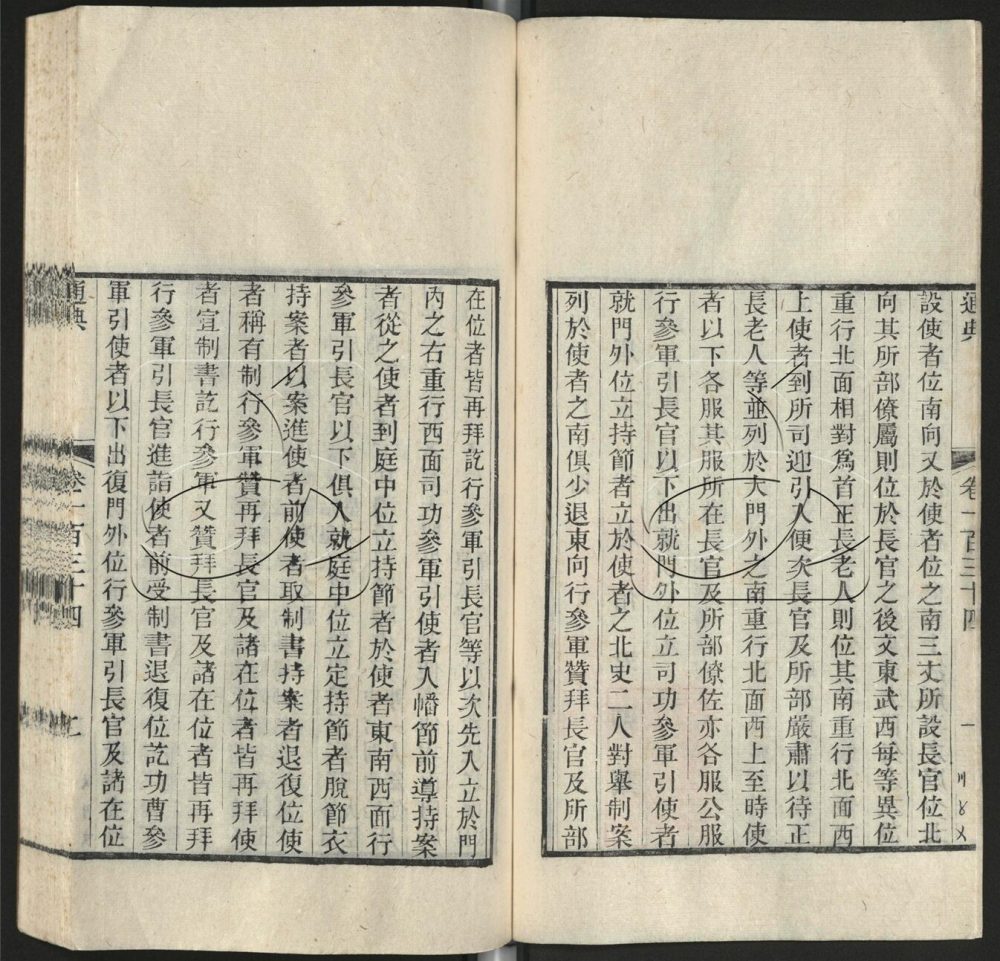 通典
卷一百三十四
一
設使者位南向又於使者位之南三丈所設長官位北
向其所部僚屬則位於長官之後文東武西每等異位
重行北面相對爲首正長老人則位其南重行北面西
上使者到所司迎引入便次長官及所部嚴肅以待正
長老人等並列於大門外之南重行北面西上至時使
者以下各服其服所在長官及所部僚佐亦各服公服
行參軍引長官以下出就門外位立司功參軍引使者
就門外位立持節者立於使者之北史二人對舉制案
列於使者之南俱少退東向行參軍贊拜長官及所部
在位者皆再拜訖行參軍引長官等以次先入立於門
內之右重行西面司功參軍引使者入幡節前導持案
者從之使者到庭中位立持節者於使者東南西面行
參軍引長官以下俱入就庭中位立定持節者脫節衣
持案者以案進使者前使者取制書持案者退復位使
者稱有制行參軍贊再拜長官及諸在位者皆再拜使
者宣制書訖行參軍又贊拜長官及諸在位者皆再拜
行參軍引長官進詣使者前受制書退復位訖功曹參
軍引使者以下出復門外位行參軍引長官及諸在位
通典
卷一百三十四